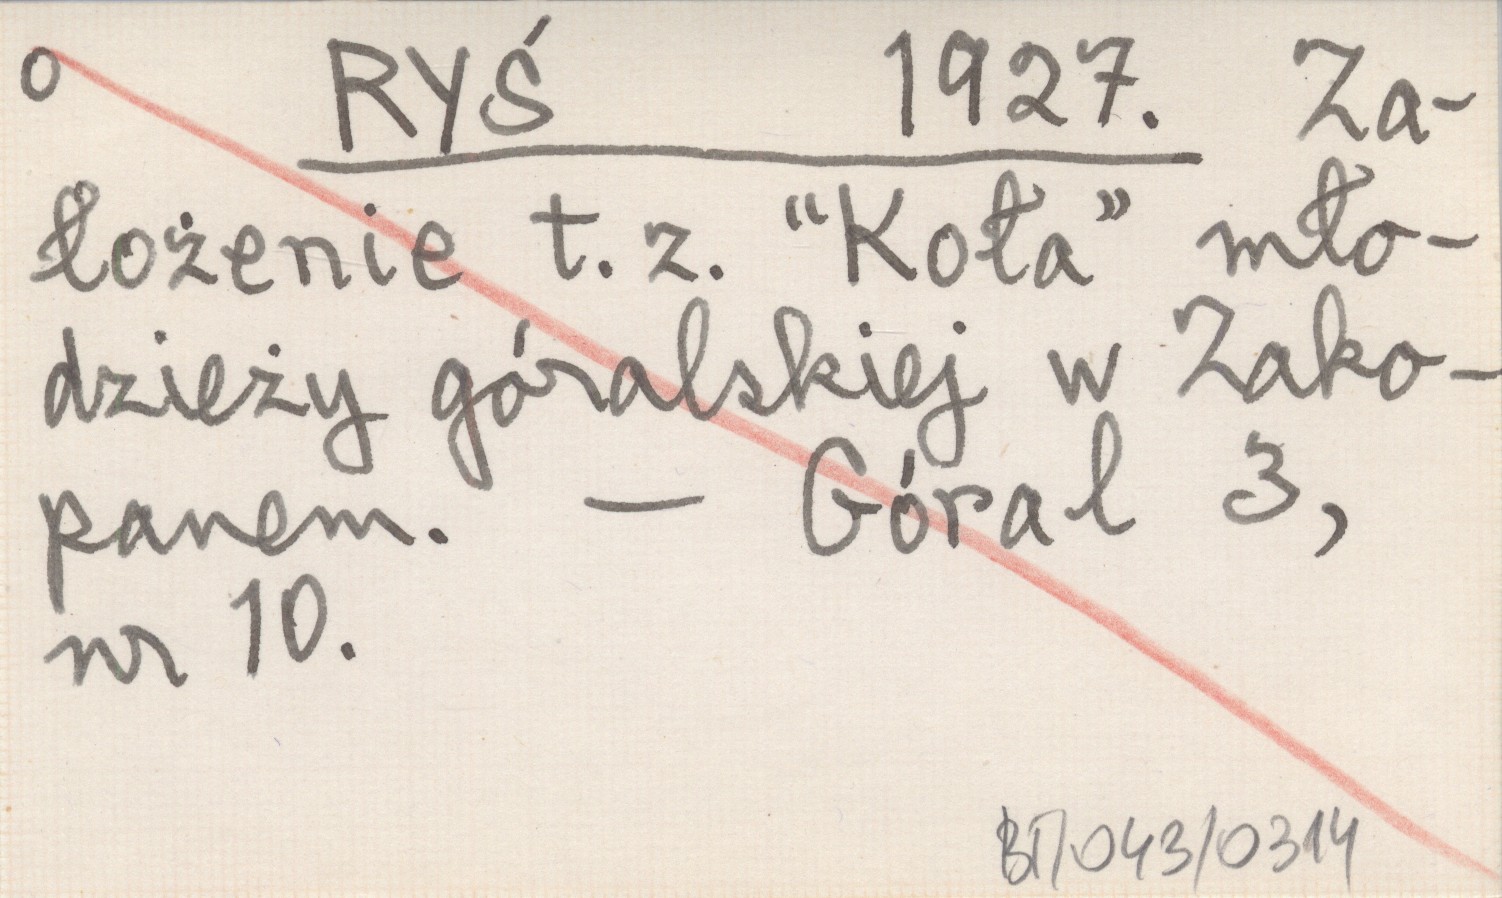 o RYŚ 1927. Za-
łożenie t. z. “Koła” mło-
dzieży góralskiej w Zako-
panem. — Góral 3,
nr 10.
BT/043/0314